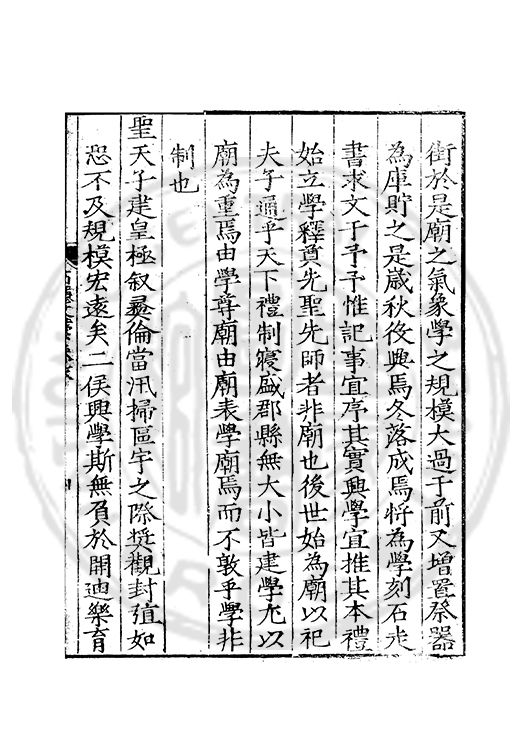 街於是廟之氣象學之規模大過于前又增置祭器
為庫貯之是歲秋役興焉冬落成焉將為學刻石走
書求文于予予惟記事宜序其實興學宜推其本禮
始立學釋奠先聖先師者非廟也後世始為廟以祀
夫子通乎天下禮制寖盛郡縣無大小皆建學尤以
廟為重焉由學尊廟由廟表學廟焉而不敦乎學非
制也
聖天子建皇極叙彞倫當汛掃區宇之際奬觀封殖如
恐不及規模宏遠矣二侯興學斯無負於開迪樂育
四